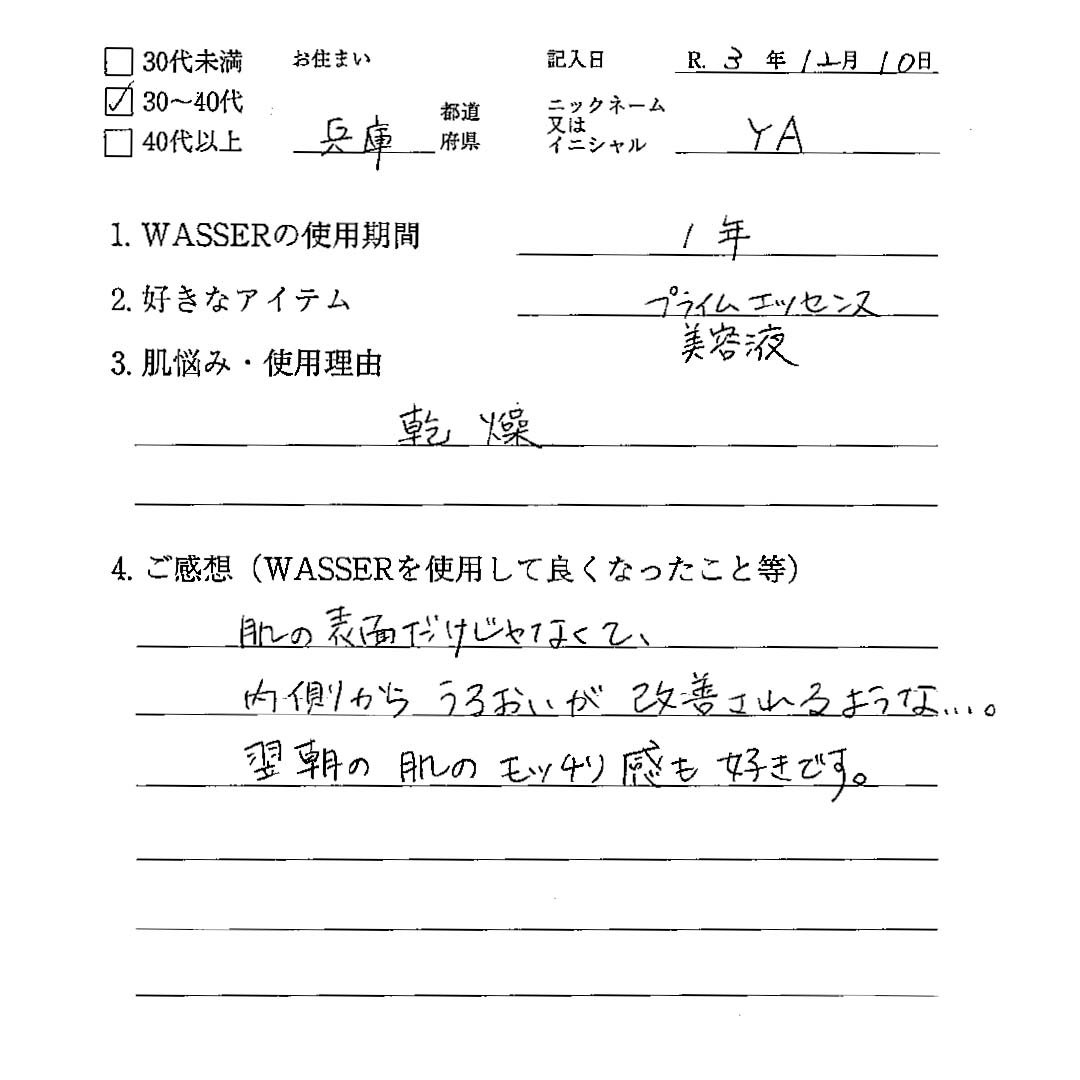 30代未満 お住まい 記入日 R. 3 年 12月 10日
☑ 30〜40代 兵庫 都道府県 ニックネーム又はイニシャル YA
40代以上
1. WASSERの使用期間 1年
2. 好きなアイテム プライムエッセンス
美容液
3. 肌悩み・使用理由
乾燥
4. ご感想（WASSERを使用して良くなったこと等）
肌の表面だけじゃなくて、
内側からうるおいが改善されるような…。
翌朝の肌のモッチリ感も好きです。